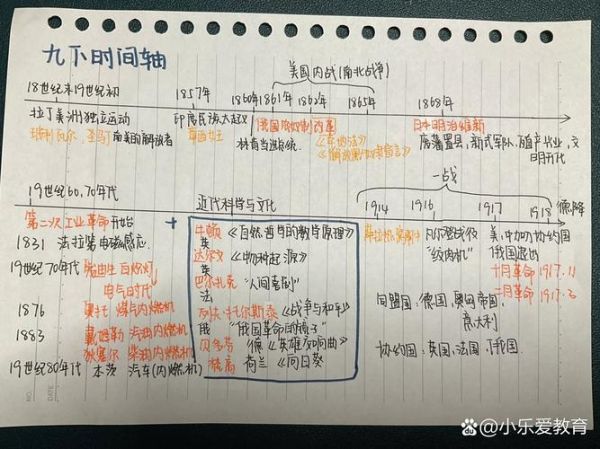 九下时间轴
美国内战(南北战争)
18世纪末19世纪初 1857年 1860年 1861年 1862年 1865年 1868年
拉丁美洲独立运动 印度民族大起义 俄国农奴制改革 日本明治维新
玻利瓦尔、圣马丁 南美的解放者 章西女王 林肯当选总统 《宅地法》 废藩置县,新式军队,殖产兴业,文明开化
《解放黑人奴隶宣言》
一战
19世纪60、70年代 近代科学与文化 1914 1916 1917 1918 德降
第二次工业革命开始 + 牛顿《自然哲学的数学原理》 萨拉热窝事件 凡尔登战役 美、中加协约国
英 "绞肉机" 俄国退出
1831 法拉第电磁感应 达尔文《物种起源》 十月革命 1917.11
英
19世纪70年代 爱迪生 白炽灯 巴尔扎克 "人间喜剧" 二月革命 1917.3
电气时代 法
1876 奥托 煤气内燃机 列夫·托尔斯泰《战争与和平》 同盟国:德国,奥匈帝国,
俄 "俄国革命的镜子" 意大利
1883 戴姆勒 汽油内燃机 贝多芬 德《英雄交响曲》
狄塞尔 柴油内燃机 梵高 荷兰《向日葵》 协约国:英国,法国,俄国.
19世纪80年代 本茨 汽车(内燃机)
NO.
DATE
小乐爱教育